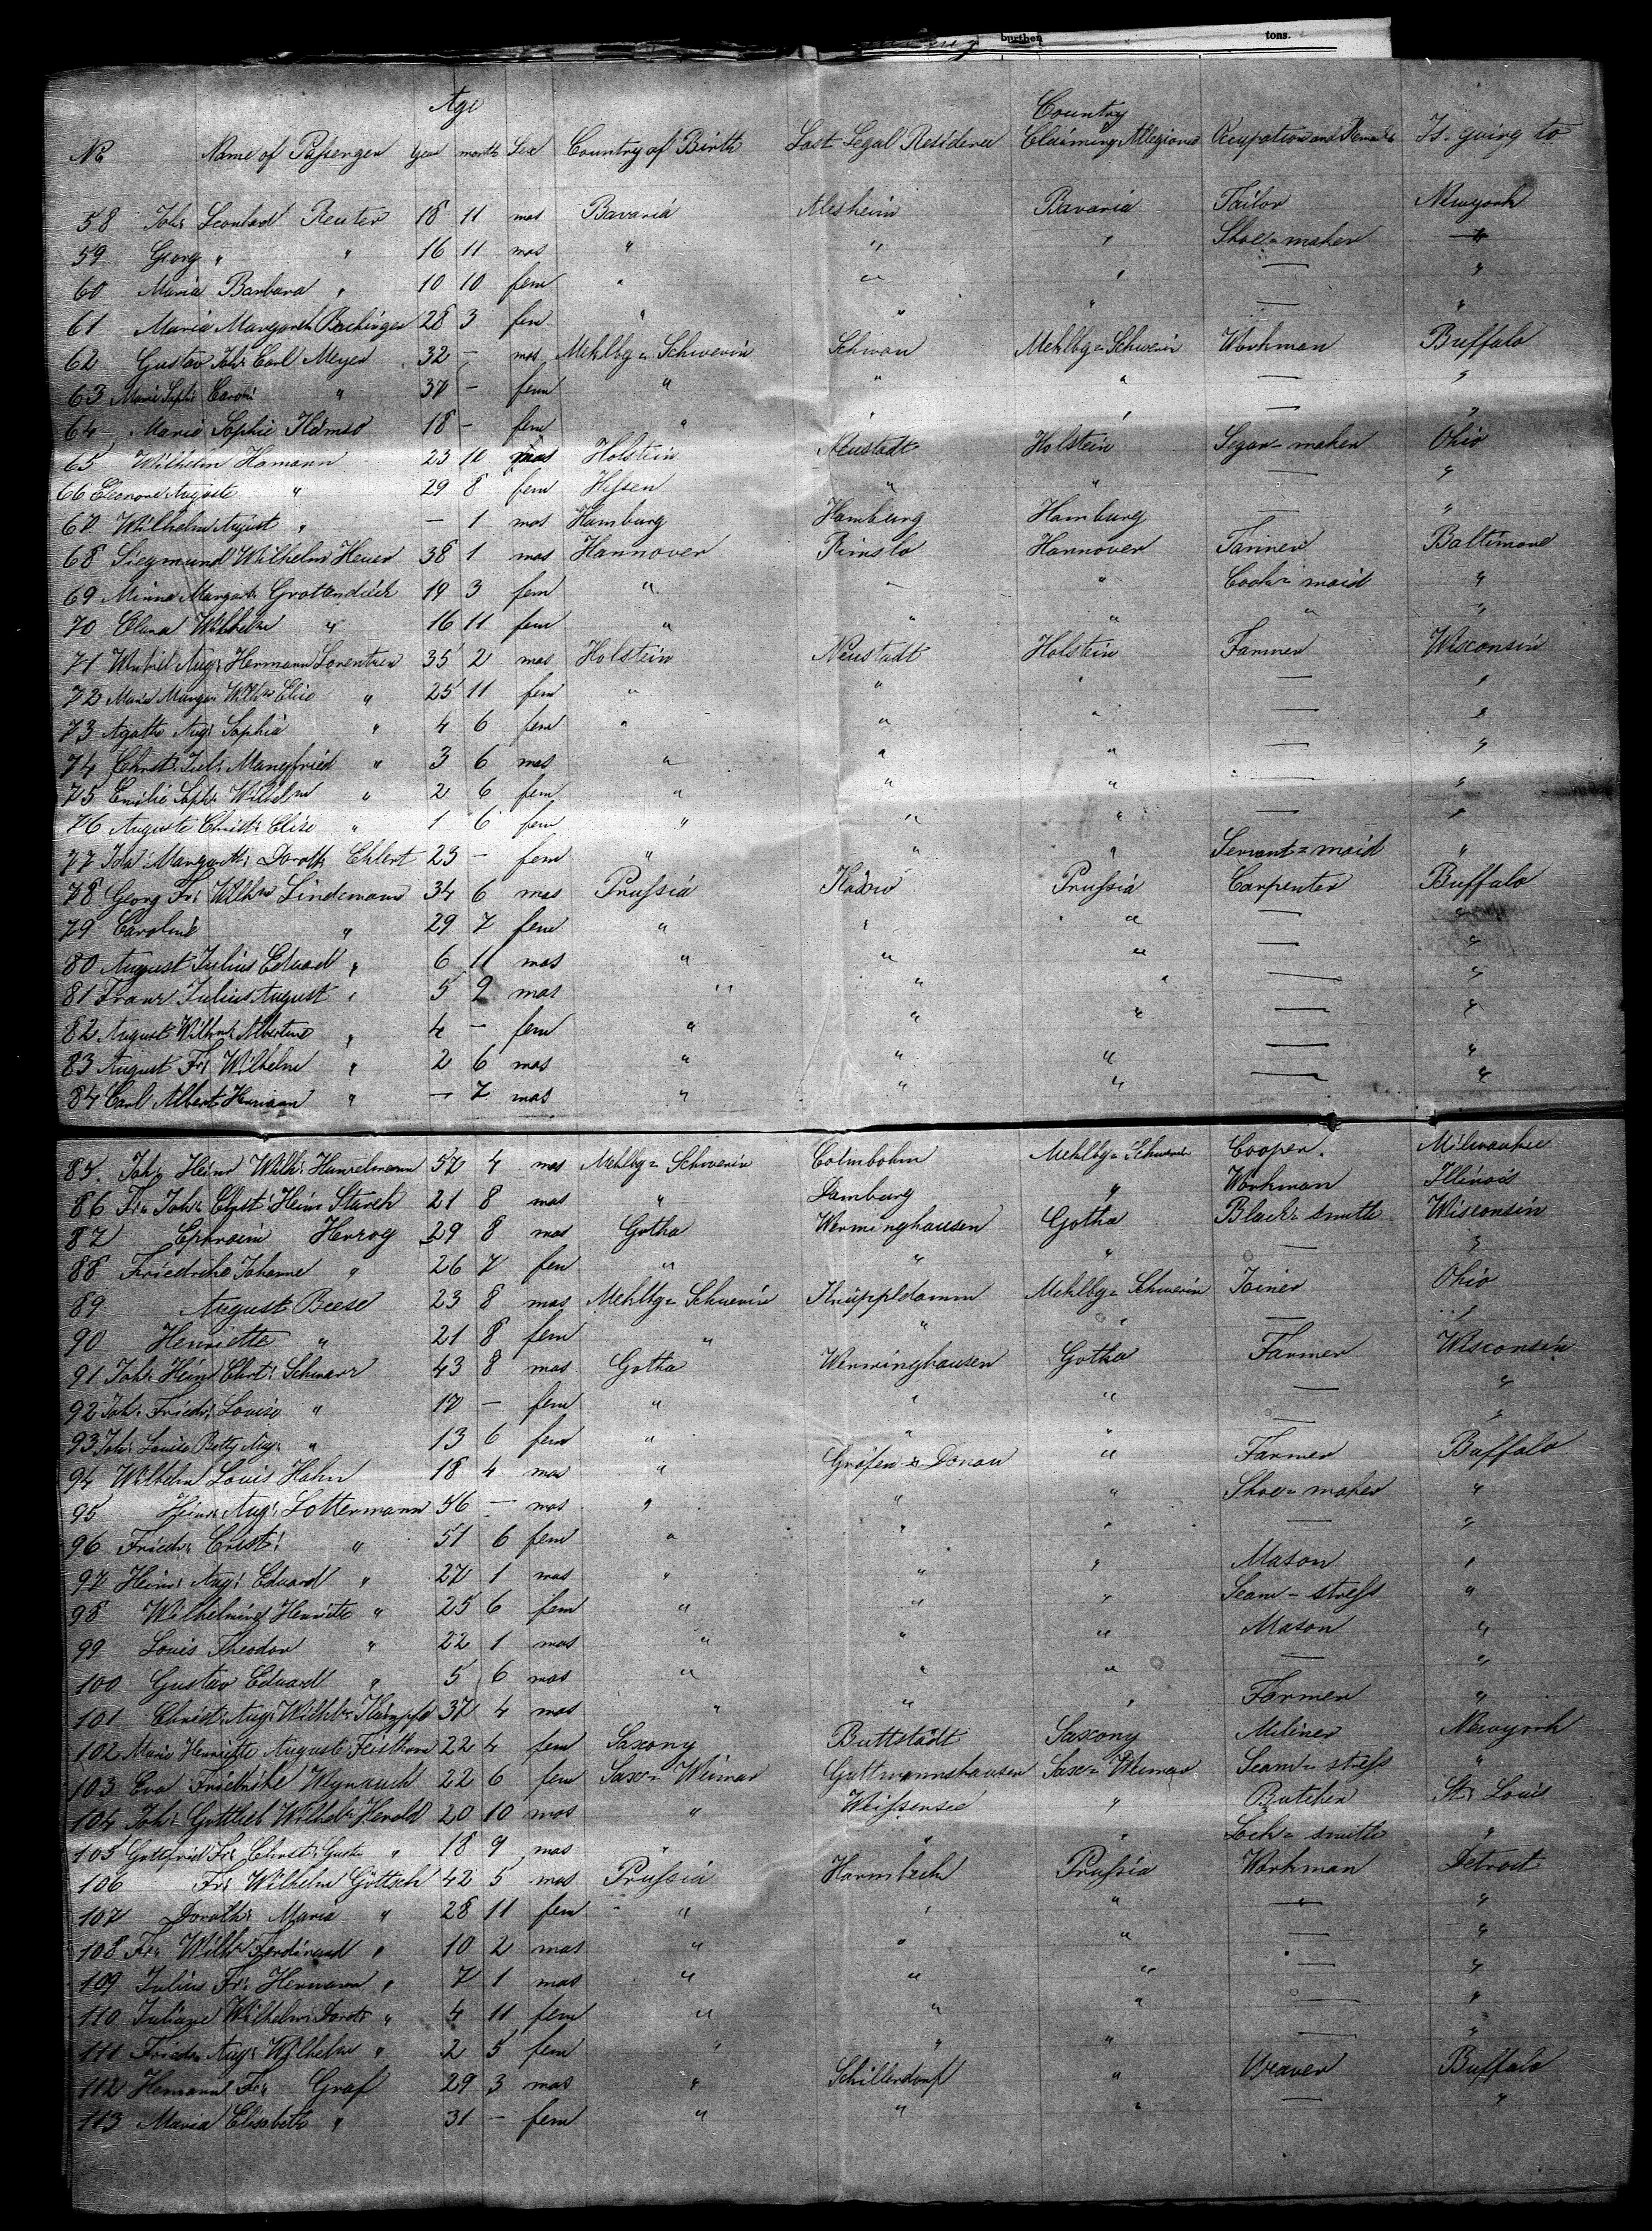 burthen tons.
Age Country
No Name of Passenger Year month Sex Country of Birth Last Legal Residence Claiming Allegiance Occupation and Remarks Is going to
58 Joh: Leonhard Reuter 18 11 mas Bavaria Alesheim Bavaria Tailor Newyork
59 Georg " " 16 11 mas " " " Shoe-maker "
60 Maria Barbara " 10 10 fem " " " — "
61 Maria Margareth Bachinger 28 3 fem " " " — "
62 Gustav Joh: Carl Meyer 32 — mas Meklbg = Schwerin Schwan Meklbg = Schwerin Workman Buffalo
63 Marie Soph: Carol: " 37 — fem " " " — "
64 Marie Sophie 18 — fem " " " — "
65 Wilhelm Hamann 23 10 mas Holstein Neustadt Holstein Segar-maker Ohio
66 Eleonore Auguste " 29 8 fem Hessen " " — "
67 Wilhelm August " — 1 mas Hamburg Hamburg Hamburg — "
68 Siegmund Wilhelm Heuer 38 1 mas Hannover Rinslo Hannover Tanner Baltimore
69 Minna Margar: Grottendiek 19 3 fem " " " Cook = maid "
70 Clara Wilhelm " 16 11 fem " " " " "
71 Aug: Hermann Lorentzen 35 2 mas Holstein Neustadt Holstein Farmer Wisconsin
72 Maria Margar: Wilh: Elise " 25 11 fem " " " — "
73 Agathe Aug: Sophia " 4 6 fem " " " — "
74 Christ: Jul: Mangfried " 3 6 mas " " " — "
75 Emilie Soph: Wilhelm " 2 6 fem " " " — "
76 Auguste Christ: Elise " 1 6 fem " " " — "
77 Margareth: Doroth: Ehlert 23 — fem " " " Servant = maid "
78 Georg Fr: Wilhm Lindemann 34 6 mas Prussia Prussia Carpenter Buffalo
79 Caroline " 29 7 fem " " " — "
80 August Julius Eduard " 6 11 mas " " " — "
81 Franz Julius August " 5 9 mas " " " — "
82 August Wilhm: Albertine " 4 — fem " " " — "
83 August Fr: Wilhelm " 2 6 mas " " " — "
84 Carl Albert Hermann " — 7 mas " " " — "
85. Joh: Heinr Wilh: Hunzelmann 57 4 mas Meklbg = Schwerin Meklbg = Schwerin Cooper. Milwaukee
86 Fr: Joh: Chrst: Heinr Starck 21 8 mas " Damburg " Workman Illinois
87 Ephraim Herzog 29 8 mas Gotha Werminghausen Gotha Black = smith Wisconsin
88 Friedrike Johanne " 26 7 fem " " " — "
89 August Beese 23 8 mas Meklbg = Schwerin Knüppldamm Meklbg = Schwerin Joiner Ohio
90 Henriette " 21 8 fem " " " — "
91 Joh: Heinr Chrst: Schwarz 43 8 mas Gotha Werminghausen Gotha Farmer Wisconsin
92 Joh: Friedr: Louise " 17 — fem " " " — "
93 Joh: Louise Betty Aug: " 13 6 fem " " " — "
94 Wilhelm Louis Hahn 18 4 mas " Gräfen = Donau " Farmer Buffalo
95 Heinr: Aug: Lottermann 56 — mas " " " Shoe = maker "
96 Friedr: Crist: " 51 6 fem " " " — "
97 Heinr: Aug: Eduard " 27 1 mas " " " Mason "
98 Wilhelmine Henriette " 25 6 fem " " " Seam-stress "
99 Louis Theodor " 22 1 mas " " " Mason "
100 Gustav Eduard " 5 6 mas " " " — "
101 Christ: Aug: Wilhlm: 37 4 mas " " " Farmer "
102 Marie Henriette Auguste Feisthorn 22 4 fem Saxony Buttstädt Saxony Miliner Newyork
103 Eva Friedrike Weyrauch 22 6 fem Saxe = Weimar Guttmannshausen Saxe = Weimar Seam = stress "
104 Joh: Gottlieb Wilhelm Herold 20 10 mas " Weissensee " Butcher St: Louis
105 Gottfried Fr: Christ: Gust: " 18 9 mas " " " Lock = smith "
106 Fr: Wilhelm Göttsch 42 5 mas Prussia Prussia Workman Detroit
107 Doroth: Maria " 28 11 fem " " " — "
108 Fr: Wilh: Ferdinand " 10 2 mas " " " "
109 Julius Fr: Hermann " 7 1 mas " " " — "
110 Juliane Wilhelm: Doroth: " 4 11 fem " " " — "
111 Friedr: Aug: Wilhelm " 2 5 fem " " " — "
112 Hemann Fr: Graf 29 3 mas " Schillerdorf " Weaver Buffalo
113 Maria Elisabeth " 31 — fem " " " — "